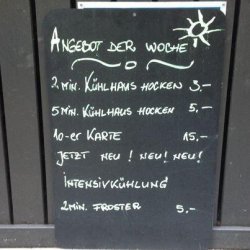 ANGEBOT DER WOCHE
2 MIN. KÜHLHAUS HOCKEN 3.-
5 MIN. KÜHLHAUS HOCKEN 5.-
10-er KARTE 15.-
JETZT NEU! NEU! NEU!
INTENSIVKÜHLUNG
2 MIN. FROSTER 5.-